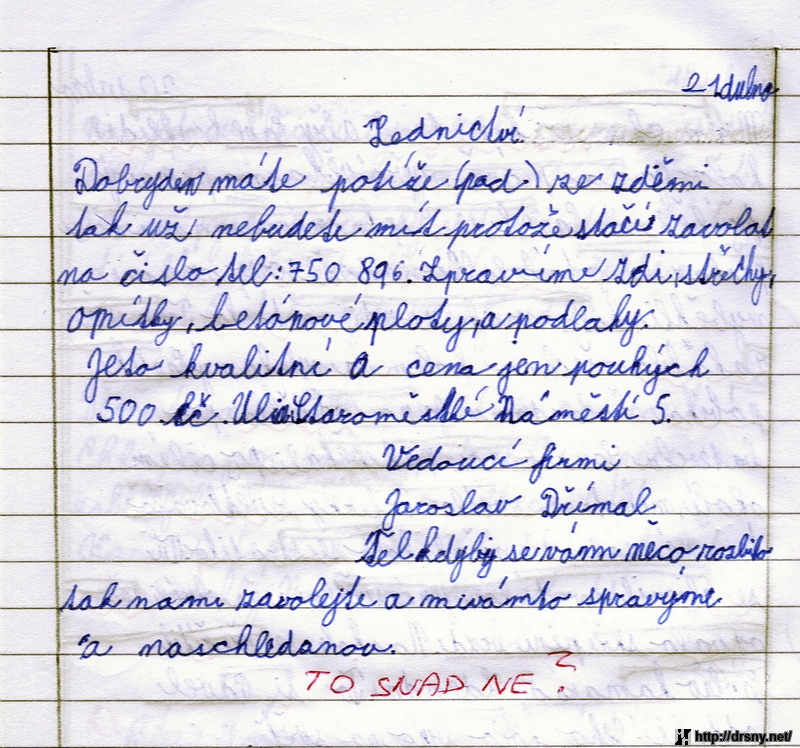 21dubna
Zednictví
Dobryden máte potíže (pad.) ze zděmi
tak už nebudete mít protože stačí zavolat
na čislo tel: 750 896. Zpravíme zdi, střechy,
omítky, betónové ploty, a podlahy.
Jeto kvalitní a cena jen pouhých
500 kč. Ulice Staroměstké Náměstí 5.
Vedoucí firmi
Jaroslav Dřímal
Tel kdyby se vám něco rozbito
tak nami zavolejte a mivámto spravýme
a naschledanou.
TO SNAD NE?
http://drsny.net/